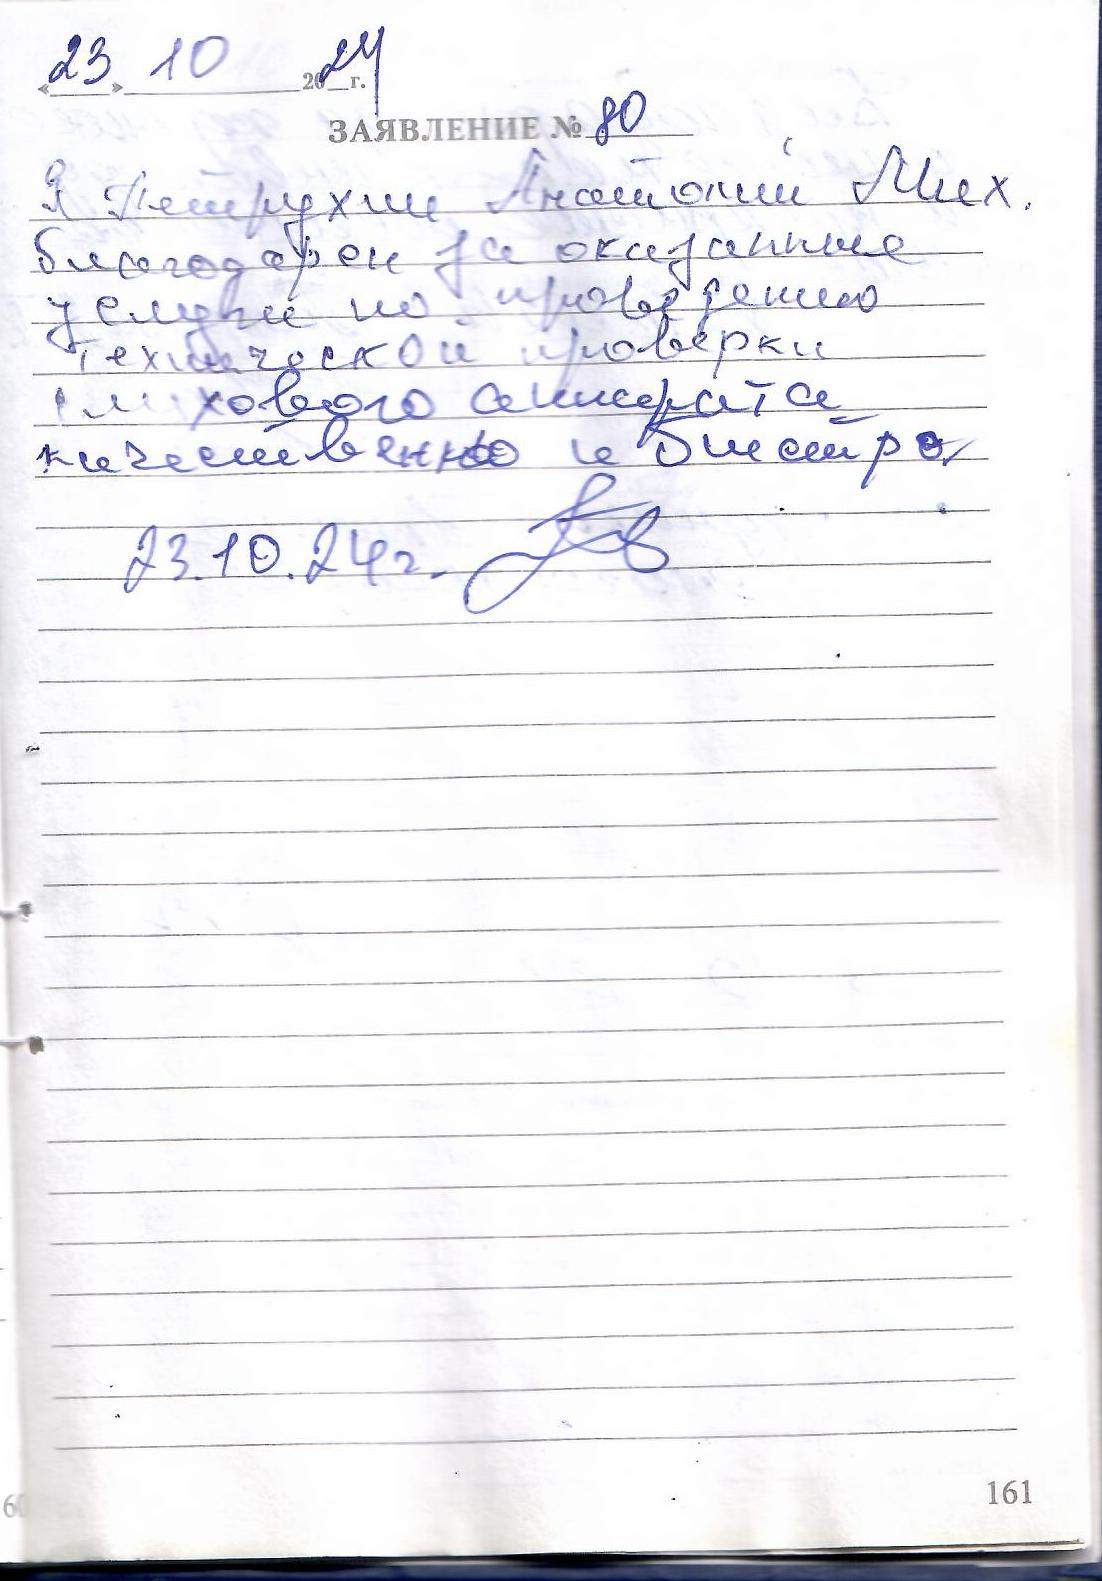 «23» 10 2024 г.
ЗАЯВЛЕНИЕ № 80
Я Петрухин Анатолий Мих.
благодарен за оказанные
услуги по проведению
технической проверки
слухового аппарата
качественно и быстро.
23.10.24г.
161